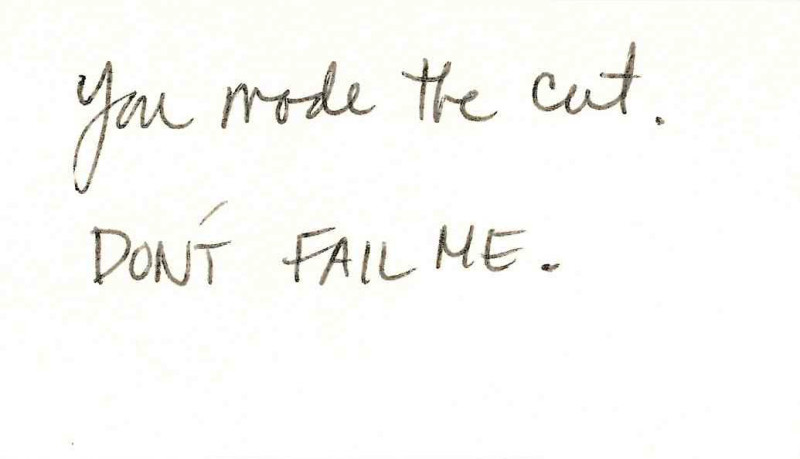 You made the cut.
DON'T FAIL ME.